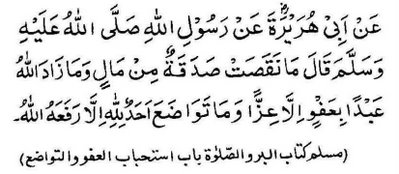 عَنْ اَبِىْ هُرَيْرَةَؓ عَنْ رَسُوْلِ اللهِ صَلَّى اللهُ عَلَيْهِ
وَسَلَّمَ قَالَ مَا نَقَصَتْ صَدَقَةٌ مِنْ مَالٍ وَمَا زَادَ اللهُ
عَبْدًا بِعَفْوٍ اِلَّا عِزًّا وَمَا تَوَاضَعَ اَحَدٌ لِلّٰهِ اِلَّا رَفَعَهُ اللهُ۔
(مسلم کتاب البر و الصلوٰة باب استحباب العفو و التواضع)